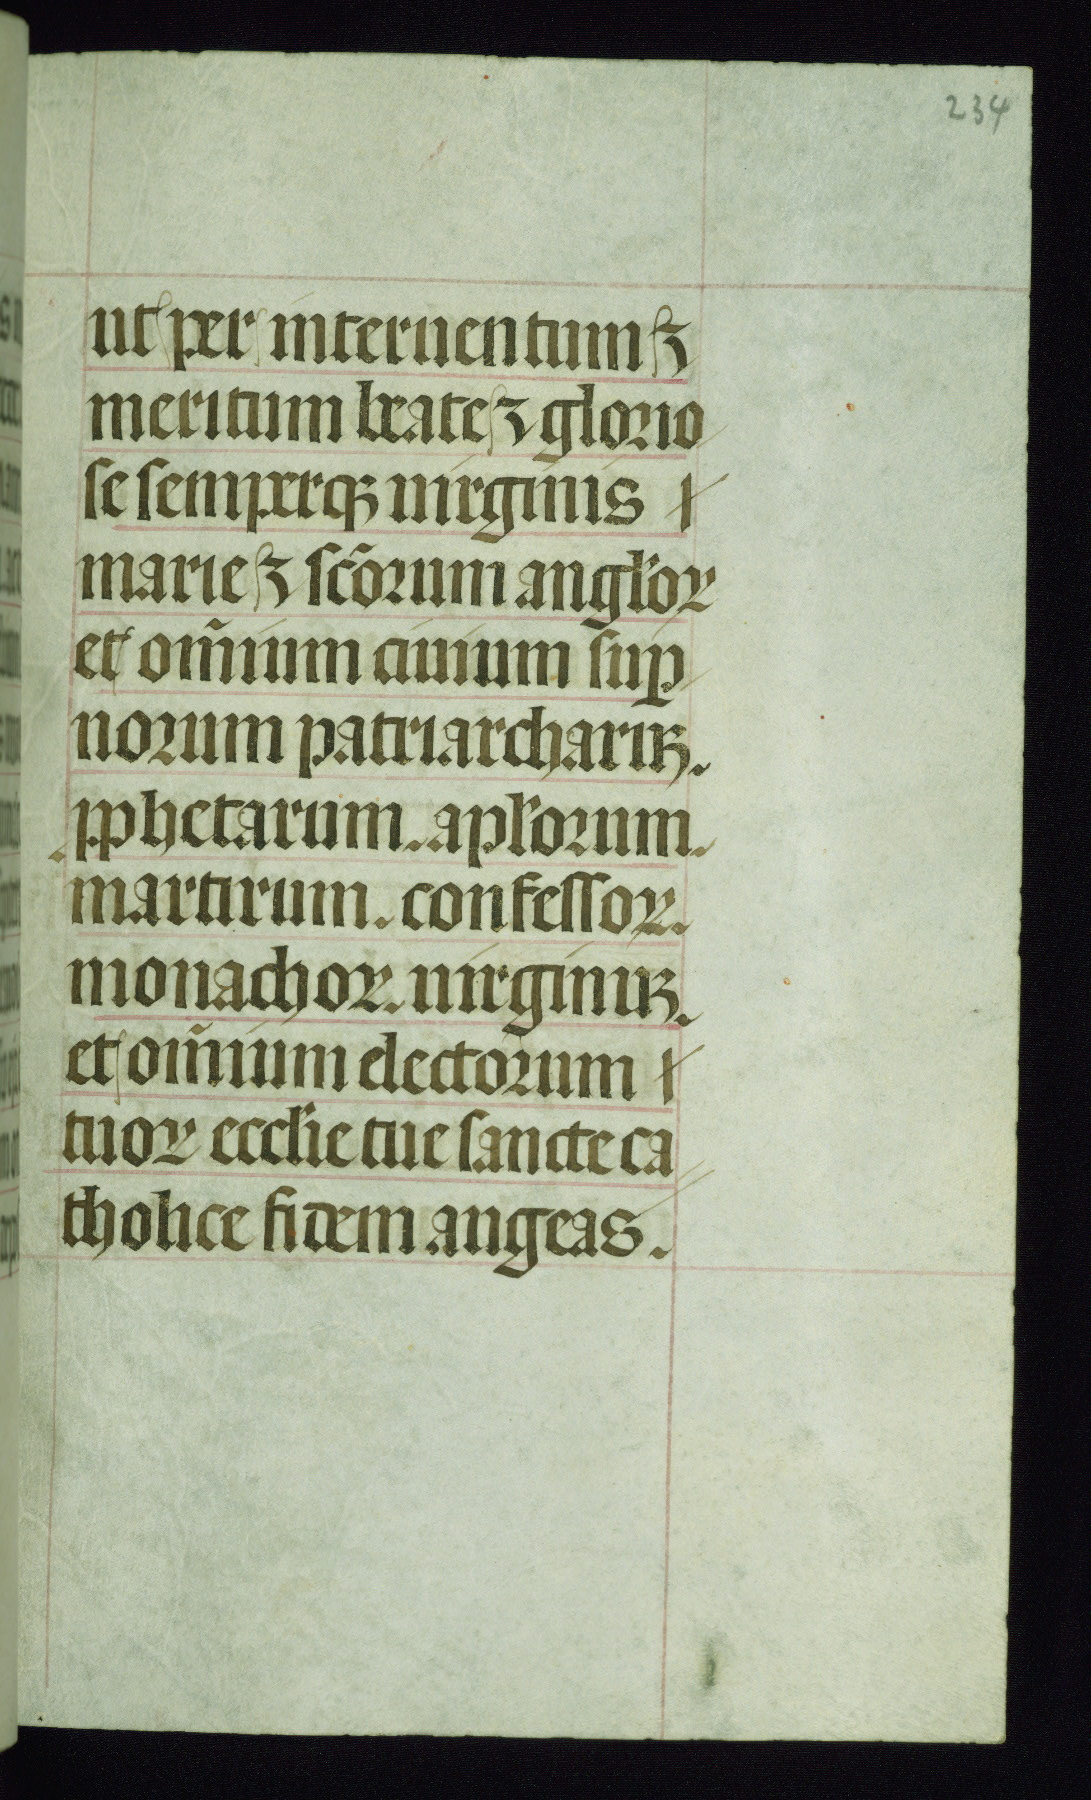 234
ut per interuentum ⁊
meritum beate ⁊ glorio
se semperqꝫ uirginis
marie ⁊ sc̃orum angl̃oꝝ
et om̃ium ciuium suꝑ
norum patriarcharuꝫ.
ꝓphetarum. apl̃orum.
martirum. confessoꝝ.
monachoꝝ. uirginuꝫ.
et om̃ium electorum
tuoꝝ eccl̃ie tue sancte ca
tholice fidem angeas.